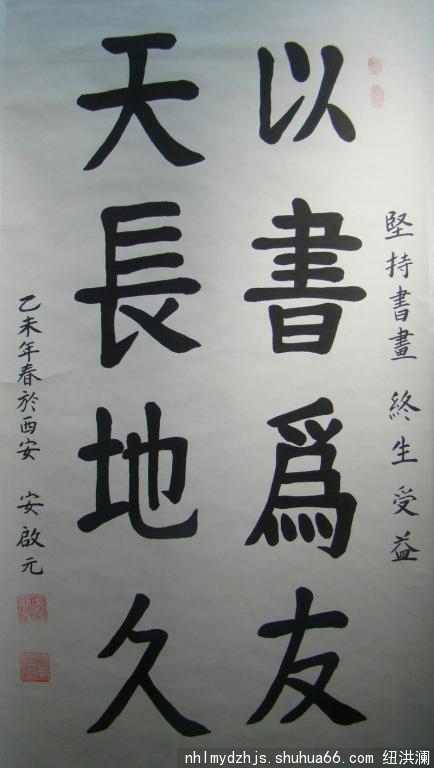 堅持書畫 終生受益
以書為友
天長地久
乙未年春於西安 安啟元
nhlmydzhjs.shuhua66.com 纽洪澜